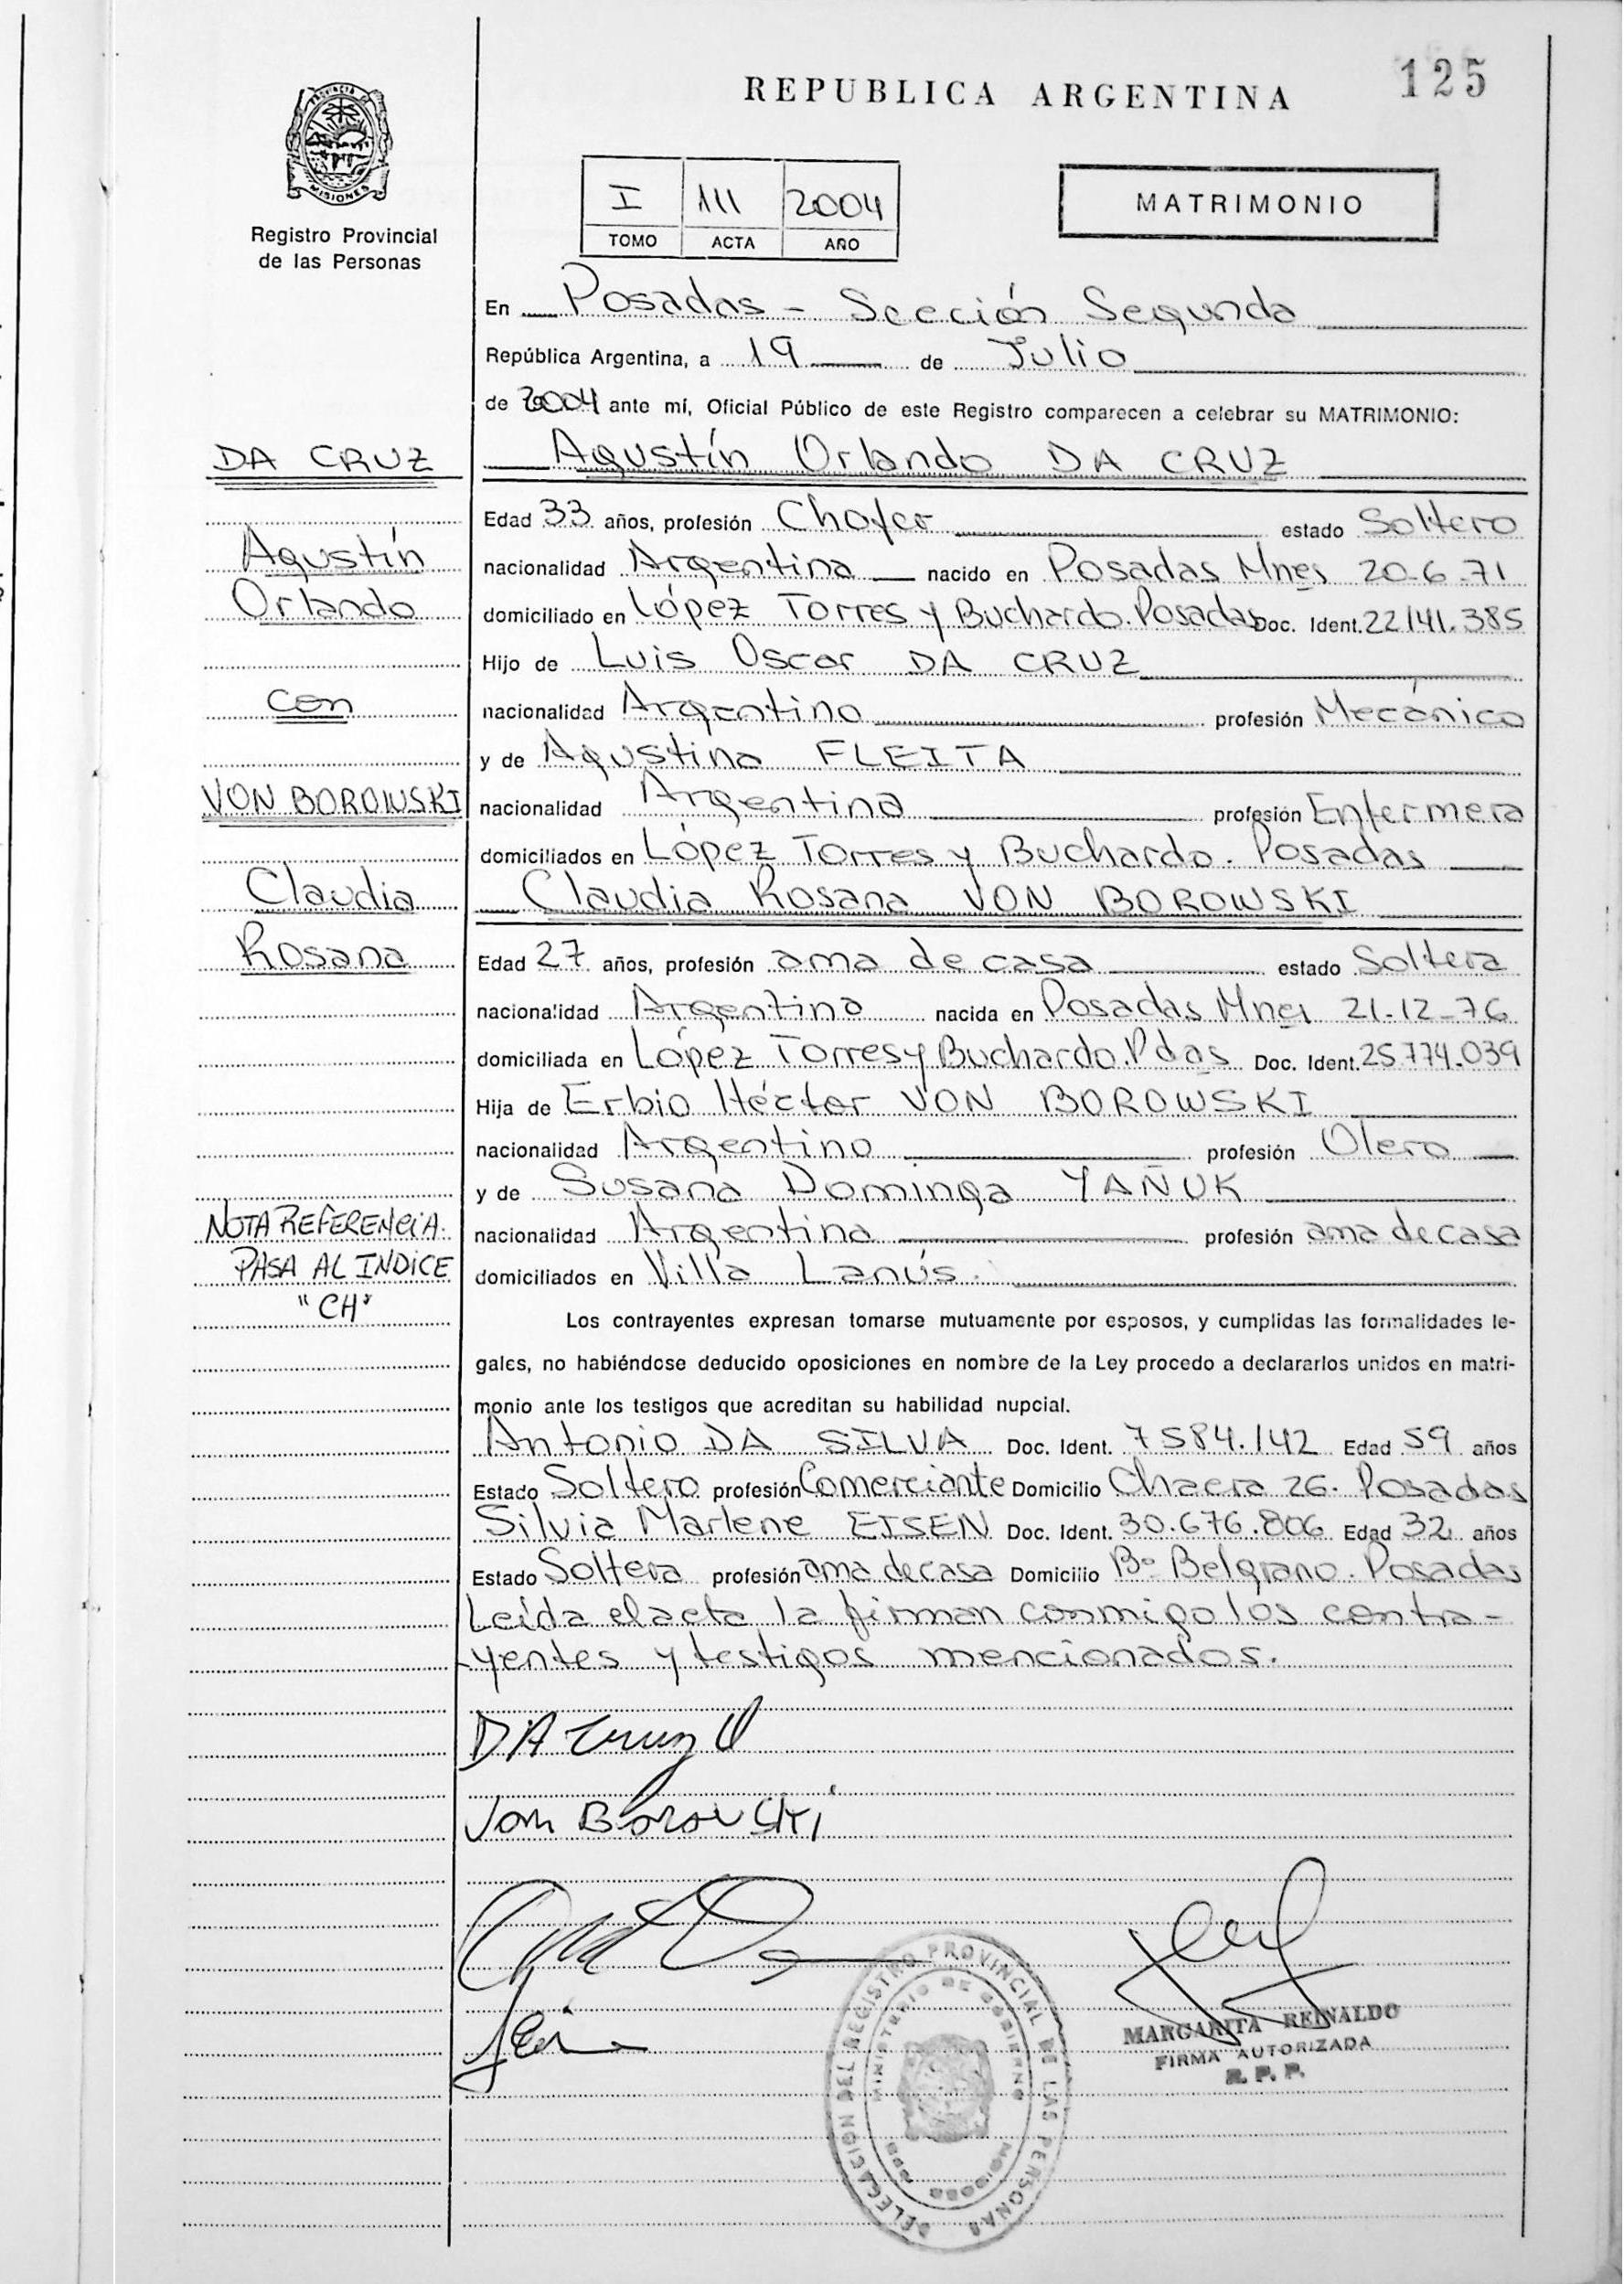 REPUBLICA ARGENTINA
125
PROVINCIA
MISIONES
Registro Provincial
de las Personas
I 111 2004
TOMO ACTA AÑO
MATRIMONIO
En Posadas - Sección Segunda
República Argentina, a 19 de Julio
de 2004 ante mí, Oficial Público de este Registro comparecen a celebrar su MATRIMONIO:
DA CRUZ
Agustín
Orlando
con
VON BOROWSKI
Claudia
Rosana
NOTA REFERENCIA.
PASA AL INDICE
"CH"
Agustín Orlando DA CRUZ
Edad 33 años, profesión Chofer estado Soltero
nacionalidad Argentina nacido en Posadas Mnes 20-6-71
domiciliado en López Torres y Buchardo. Posadas Doc. Ident. 22.141.385
Hijo de Luis Oscar DA CRUZ
nacionalidad Argentino profesión Mecánico
y de Agustina FLEITA
nacionalidad Argentina profesión Enfermera
domiciliados en López Torres y Buchardo. Posadas
Claudia Rosana VON BOROWSKI
Edad 27 años, profesión ama de casa estado Soltera
nacionalidad Argentina nacida en Posadas Mnes 21-12-76
domiciliada en López Torres y Buchardo. Pdas Doc. Ident. 25.774.039
Hija de Erbio Héctor VON BOROWSKI
nacionalidad Argentino profesión Olero
y de Susana Dominga YAÑUK
nacionalidad Argentina profesión ama de casa
domiciliados en Villa Lanús.
Los contrayentes expresan tomarse mutuamente por esposos, y cumplidas las formalidades le-
gales, no habiéndose deducido oposiciones en nombre de la Ley procedo a declararlos unidos en matri-
monio ante los testigos que acreditan su habilidad nupcial.
Antonio DA SILVA Doc. Ident. 7584.142 Edad 59 años
Estado Soltero profesión Comerciante Domicilio Chacra 26. Posadas
Silvia Marlene EISEN Doc. Ident. 30.676.806 Edad 32 años
Estado Soltera profesión ama de casa Domicilio Bº Belgrano. Posadas
Leída el acta la firman conmigo los contra-
yentes y testigos mencionados.
DA Cruz O
Von Borowski
DELEGACION DEL REGISTRO PROVINCIAL DE LAS PERSONAS
MINISTERIO DE GOBIERNO
MARGARITA REINALDO
FIRMA AUTORIZADA
R. P. P.